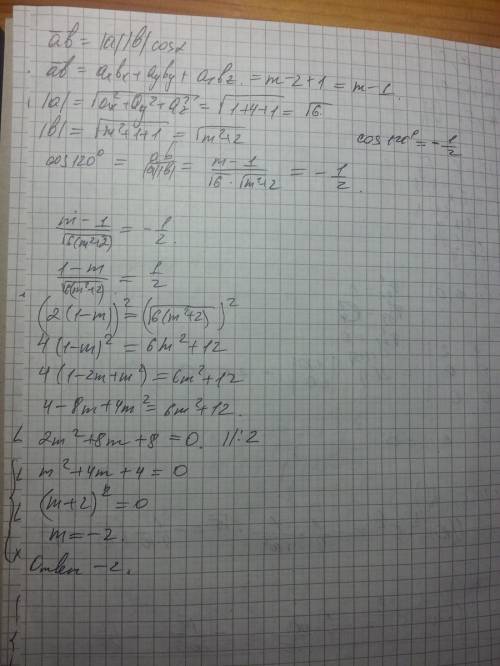 ab = |a||b| cosα
ab = aₓbₓ + a_yb_y + a_zb_z = m-2+1 = m-1.
|a| = √(aₓ² + a_y² + a_z²) = √(1+4+1) = √6.
|b| = √(m²+1+1) = √(m²+2)
cos120° = -1/2
cos120° = ab/(|a||b|) = (m-1)/(√6 · √(m²+2)) = -1/2.
(m-1)/√(6(m²+2)) = -1/2.
(1-m)/√(6(m²+2)) = 1/2
(2(1-m))² = (√(6(m²+2)))²
4(1-m)² = 6m²+12
4(1-2m+m²) = 6m²+12
4-8m+4m² = 6m²+12.
2m²+8m+8 = 0. ||:2
m²+4m+4 = 0
(m+2)² = 0
m = -2.
Ответ -2.